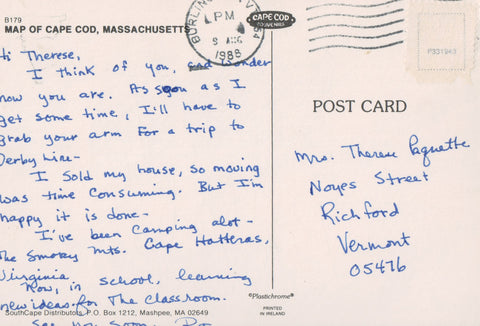 B179
MAP OF CAPE COD, MASSACHUSETTS
BURLINGTON, VT 054
PM
9 AUG
1988
CAPE COD
P331943
Hi Therese,
I think of you, and wonder
how you are. As soon as I
get some time, I'll have to
grab your arm for a trip to
Derby Line-
I sold my house, so moving
was time consuming. But I'm
happy it is done-
I've been camping alot-
The Smoky Mts. Cape Hatteras,
Virginia
Now, in school, learning
new ideas for the classroom.
See you soon.
POST CARD
Mrs. Therese Paquette
Noyes Street
Richford
Vermont
05476
"Plastichrome"®
PRINTED
IN IRELAND
SouthCape Distributors, P.O. Box 1212, Mashpee, MA 02649